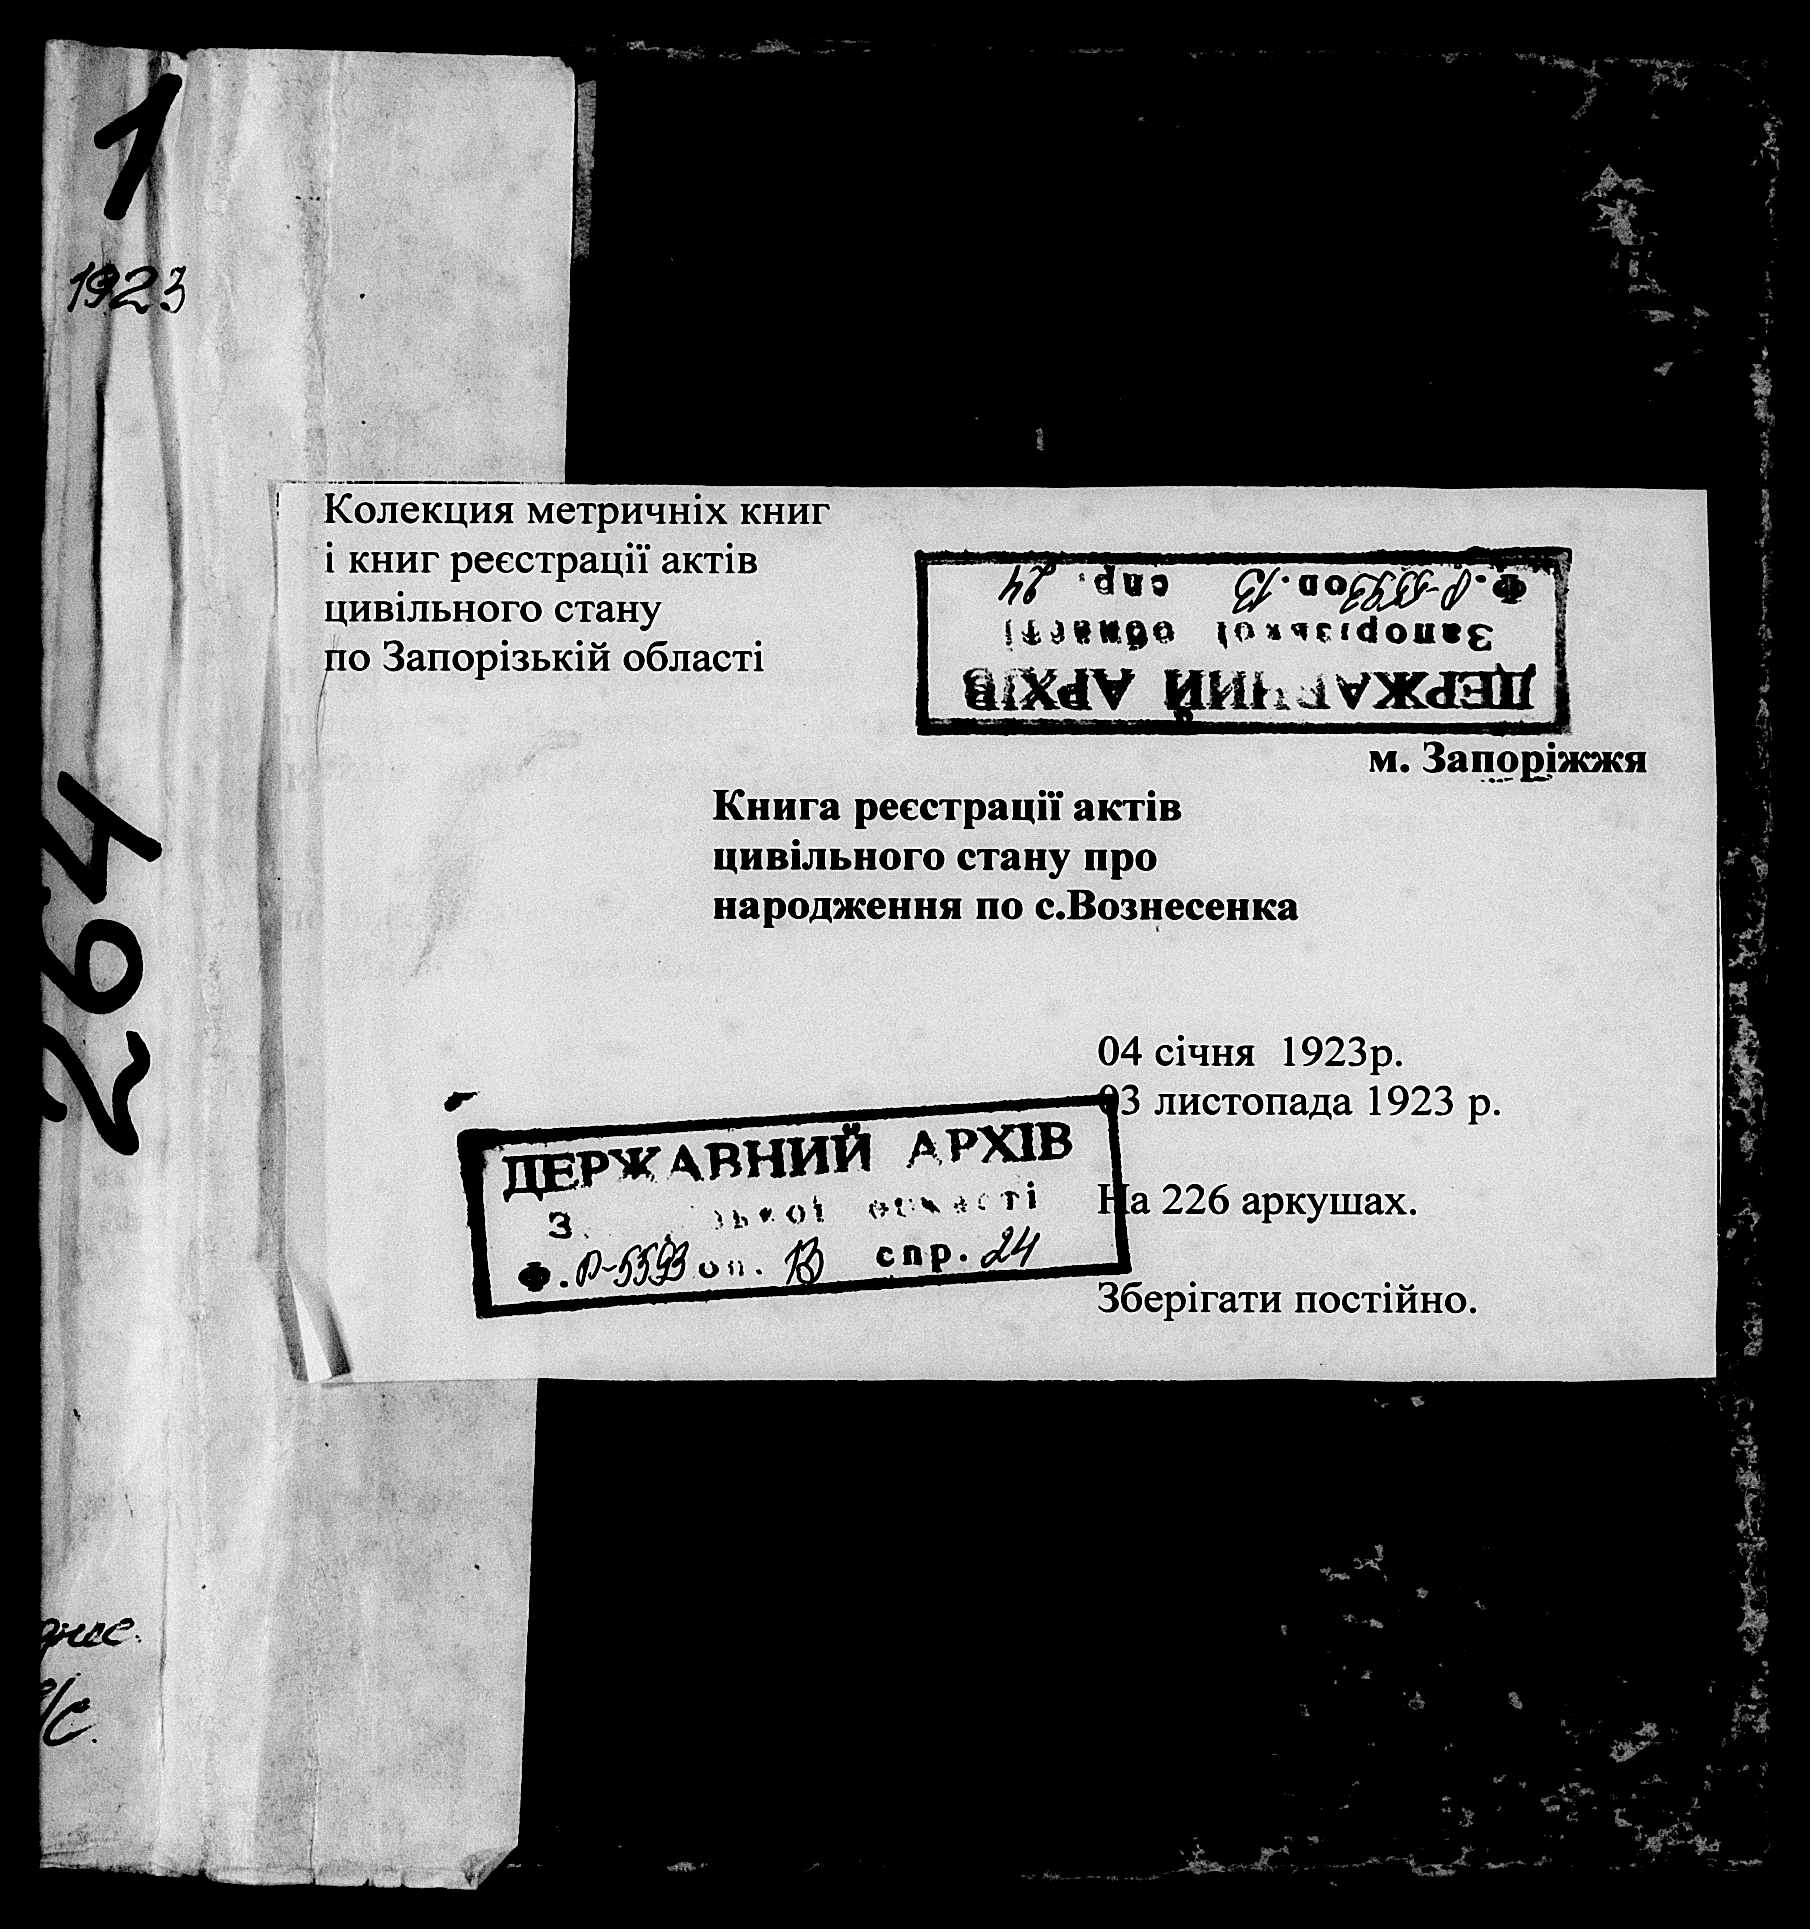 1
1923
264
Колекция метричніх книг
і книг реєстрації актів
цивільного стану
по Запорізькій області
Ф. Р-5593 оп. 13 спр. 24
Запорізької області
ДЕРЖАВНИЙ АРХІВ
м. Запоріжжя
Книга реєстрації актів
цивільного стану про
народження по с.Вознесенка
04 січня 1923р.
03 листопада 1923 р.
ДЕРЖАВНИЙ АРХІВ
області
Ф. Р-5593 оп. 13 спр. 24
На 226 аркушах.
Зберігати постійно.